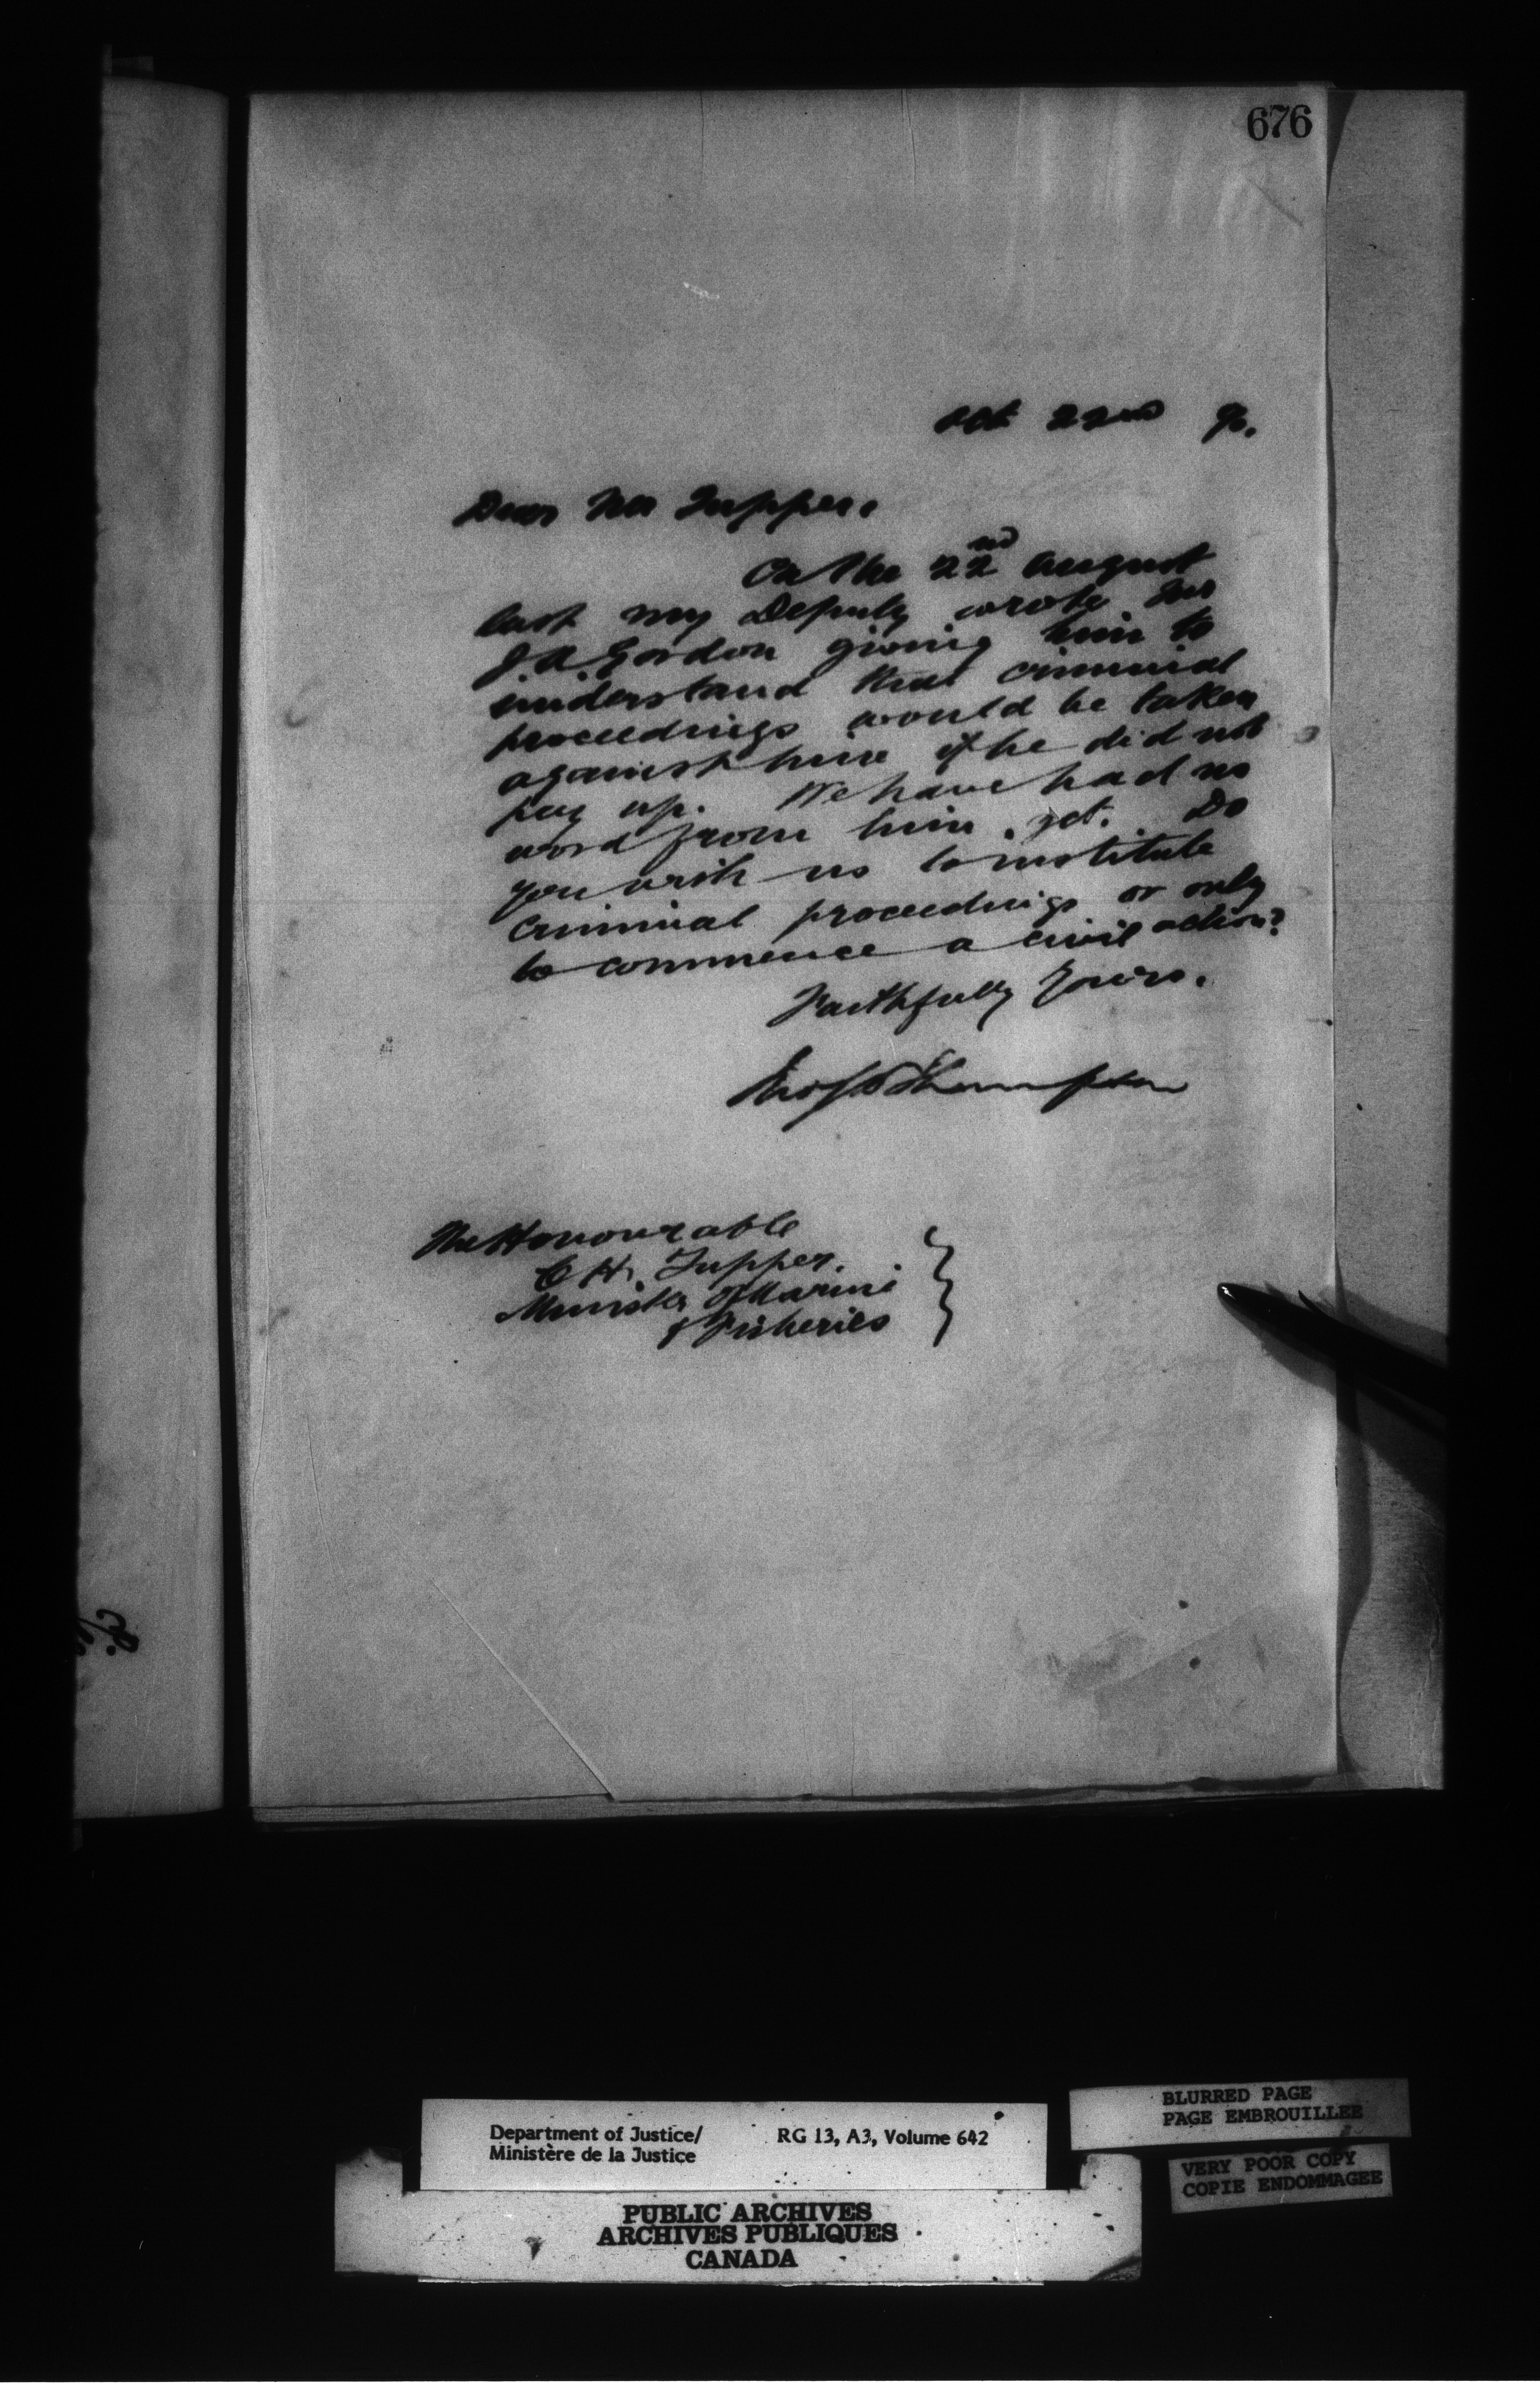 676
Oct 22nd 90.
Dear Mr Tupper,
On the 22nd August
last my Deputy wrote Mr
J. A. Gordon giving him to
understand that criminal
proceedings would be taken
against him if he did not
pay up. We have had no
word from him yet. Do
you wish us to institute
criminal proceedings or only
to commence a civil action?
Faithfully Yours,
Jno S D Thompson
The Honourable
C H. Tupper.
Minister of Marine
& Fisheries
Department of Justice/ RG 13, A3, Volume 642
Ministère de la Justice
PUBLIC ARCHIVES
ARCHIVES PUBLIQUES
CANADA
BLURRED PAGE
PAGE EMBROUILLEE
VERY POOR COPY
COPIE ENDOMMAGEE